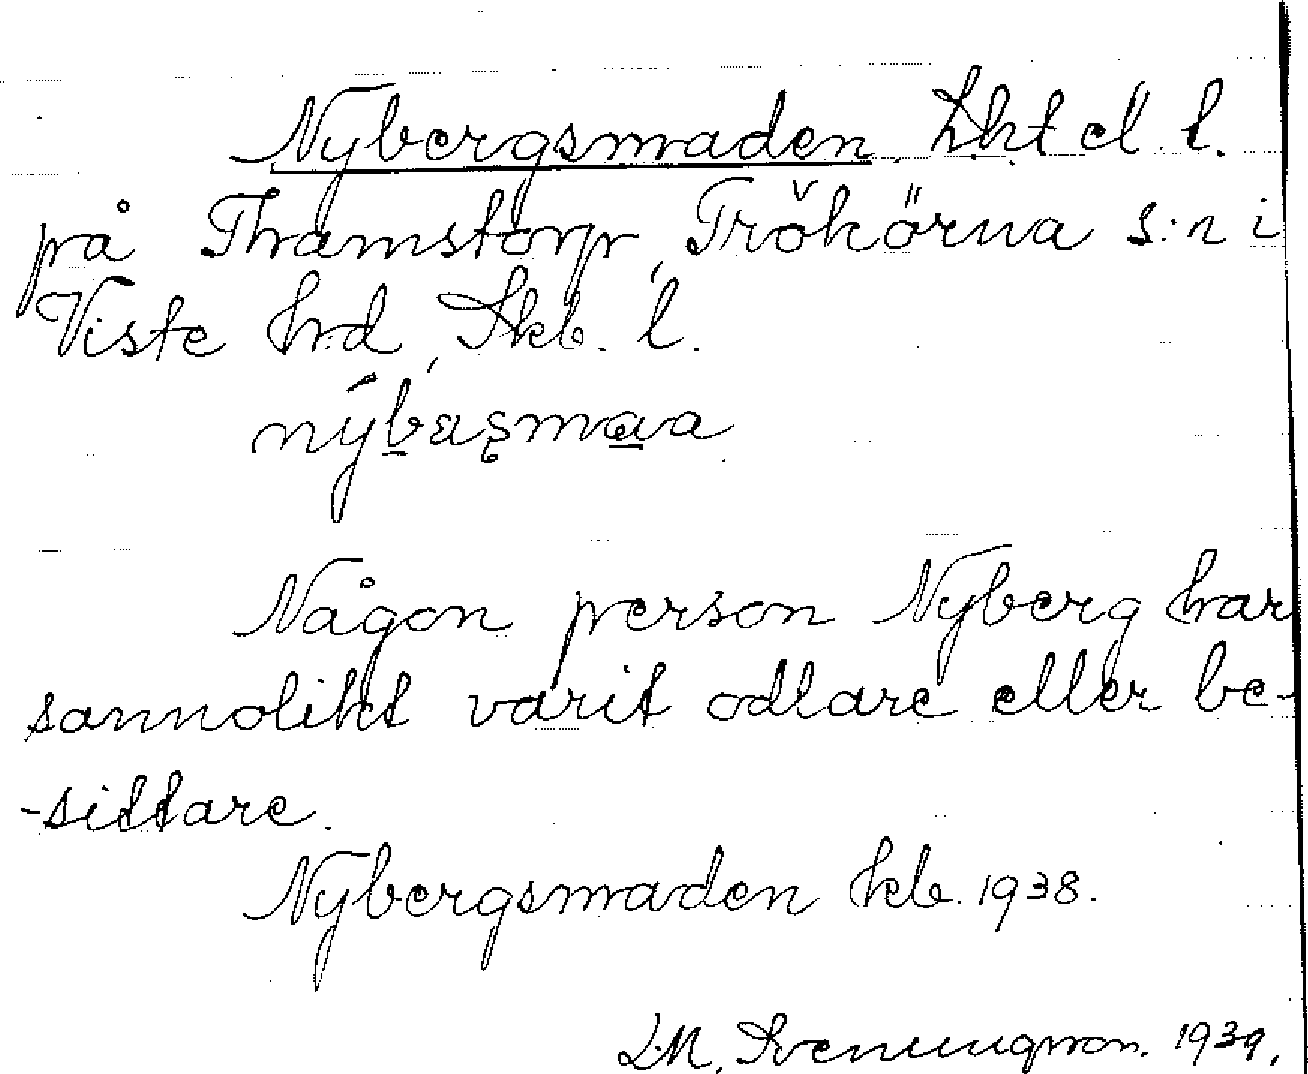 Nybergsmaden. Lht el. l.
på Thamstorp, Trökörna s:n i
Viste hrd, Skb. l.
Någon person Nyberg har
sannolikt varit odlare eller be-
-sittare.
Nybergsmaden kb. 1938.
L.M. Svenungsson. 1939.